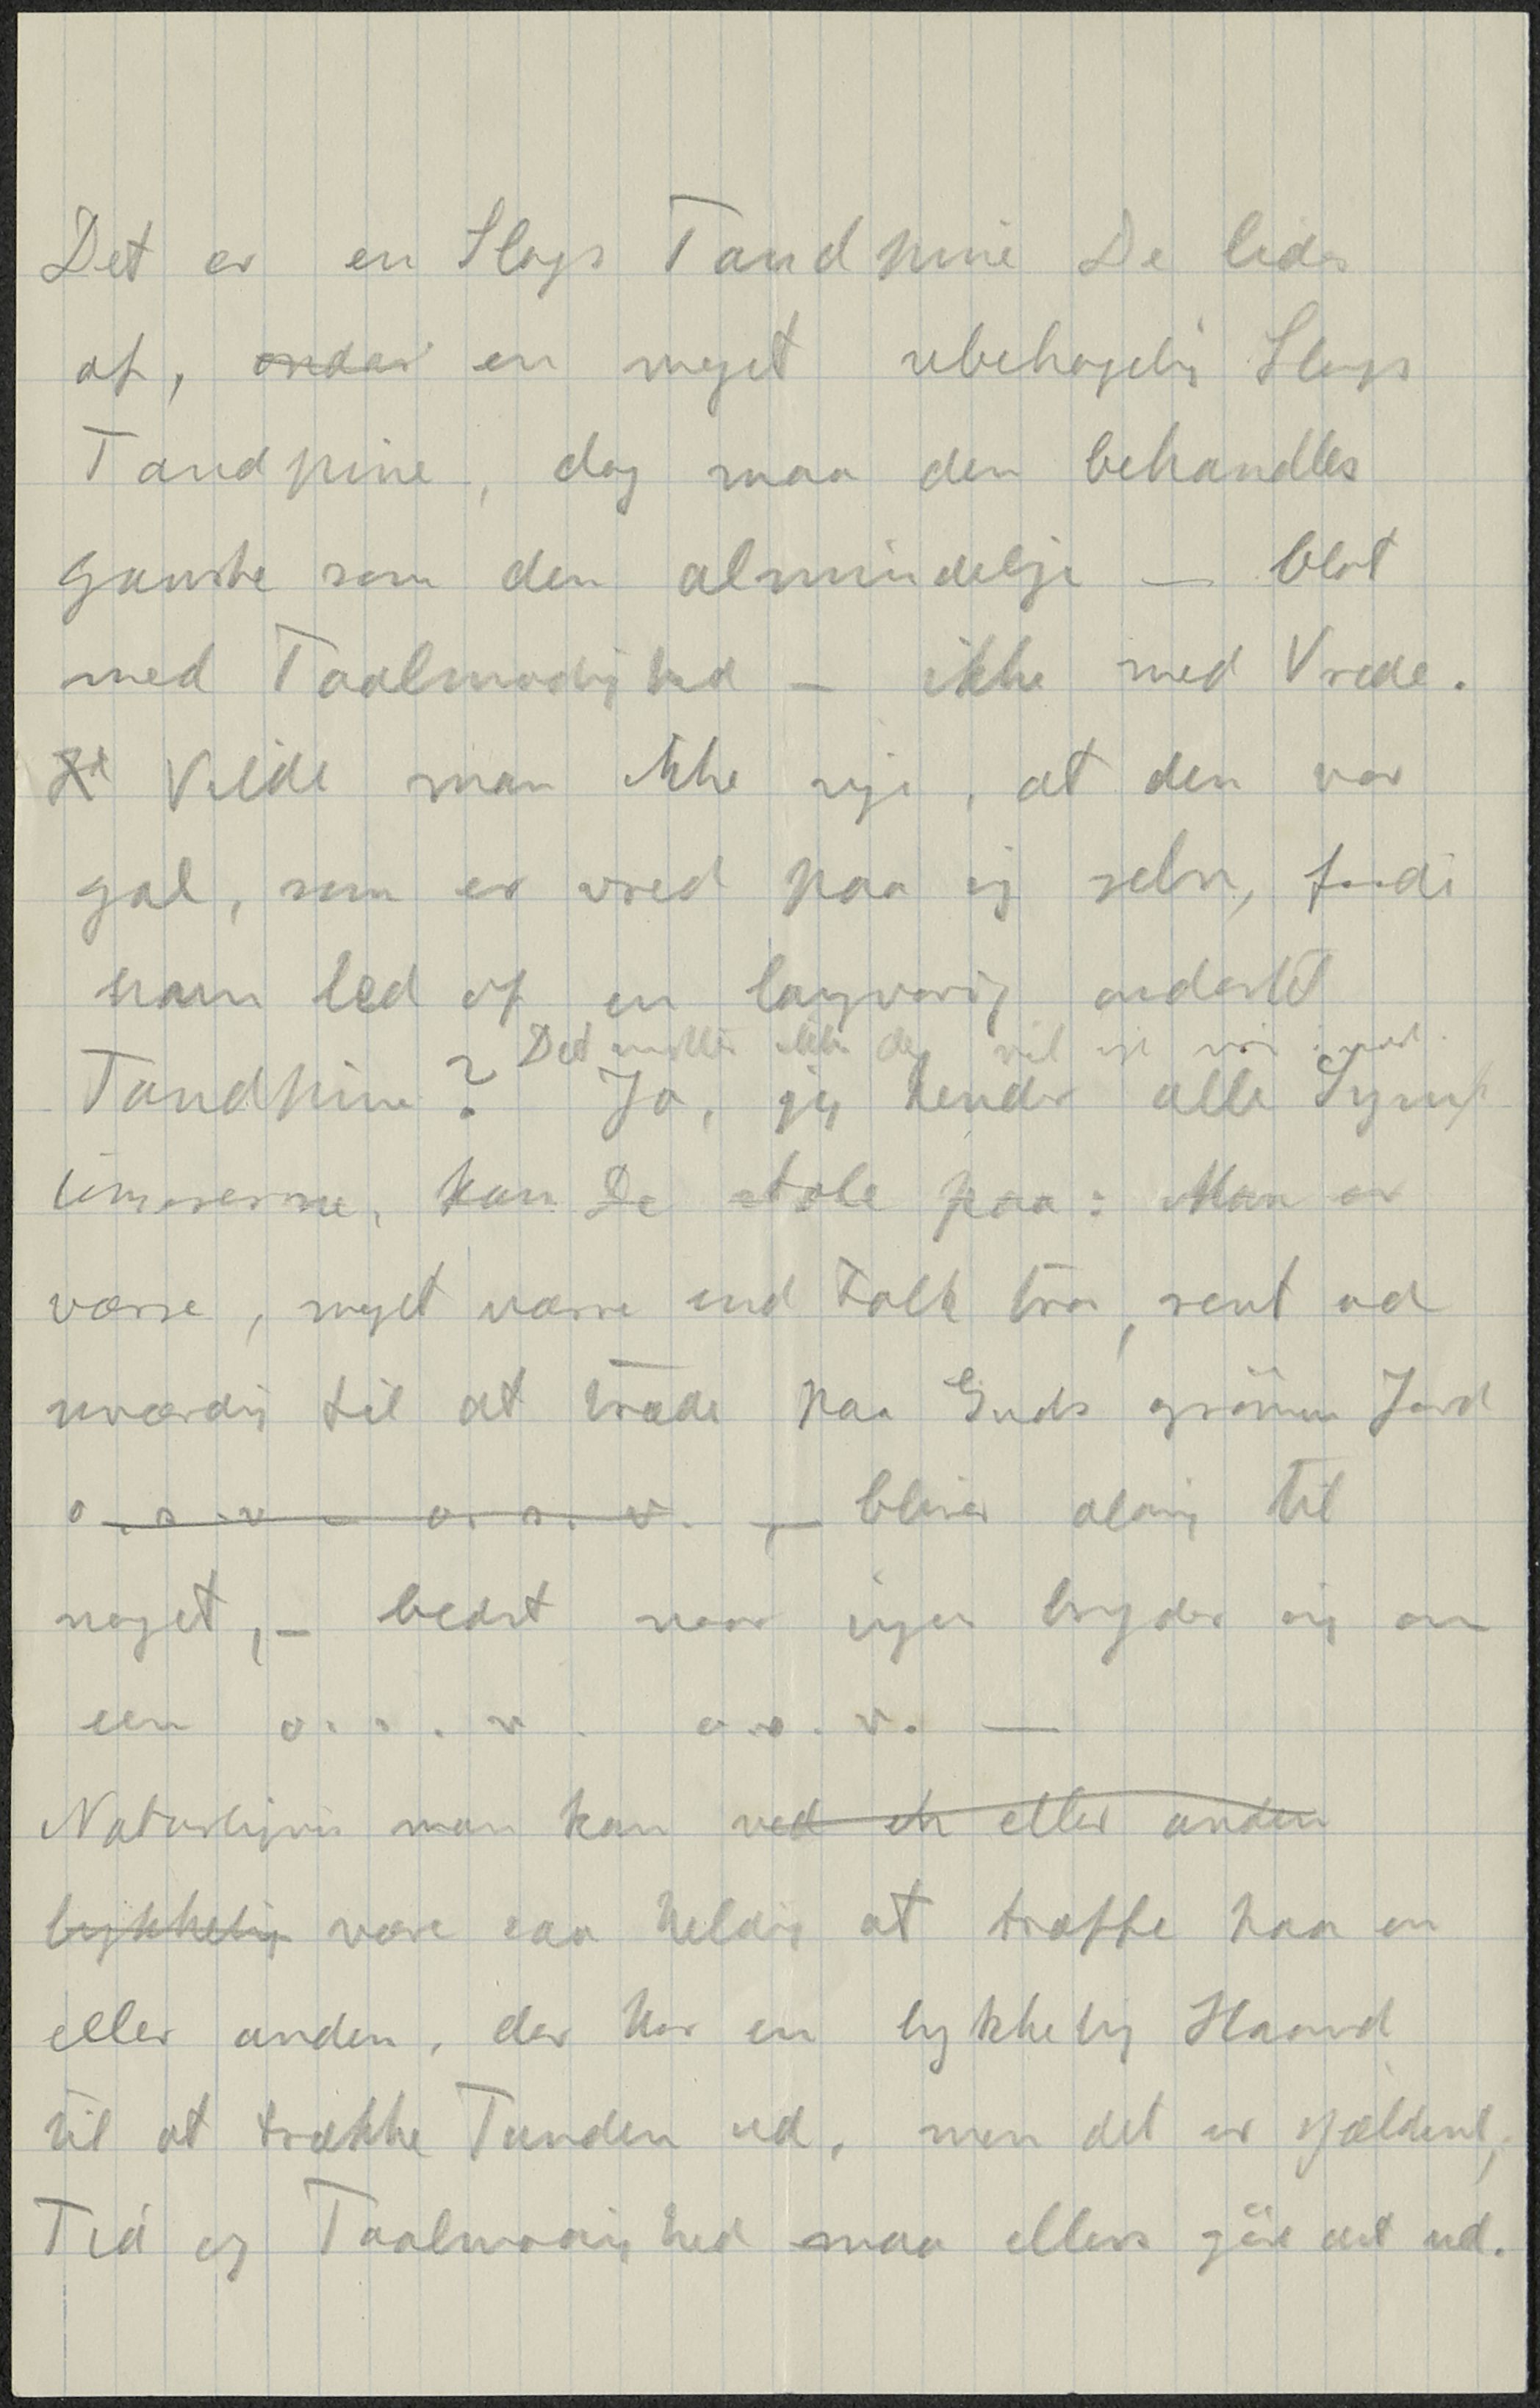 Det er en Slags Tandpine De lider
af, ondar en meget ubehagelig Slags
Tandpine, dog maa den behandles
ganske som den almindelige — blot
med Taalmodighed – ikke med Vrede.
Vilde man ikke sige, at den var
gal, som er vred paa sig selv, fordi
ham led af en langvarig ondartet
Det ikke
Tandpine? Ja, jeg kender alle Symp
tomerne, kan De stole paa: Man er
værre, meget værre end Folk tror, rent ud
uværdig til at træde paa Guds grönne Jord
o.s.v – o.s.v. – bliver aldrig til
noget, – bedst naar ingen bryder sig om
een o.s.v. o.s.v. —
Naturligvis man kan ved en eller anden
lykkelig være saa heldig at træffe paa en
eller anden, der har en lykkelig Haand
til at trække Tanden ud, men det er sjældent,
Tid og Taalmodighed maa ellers göre det ud.